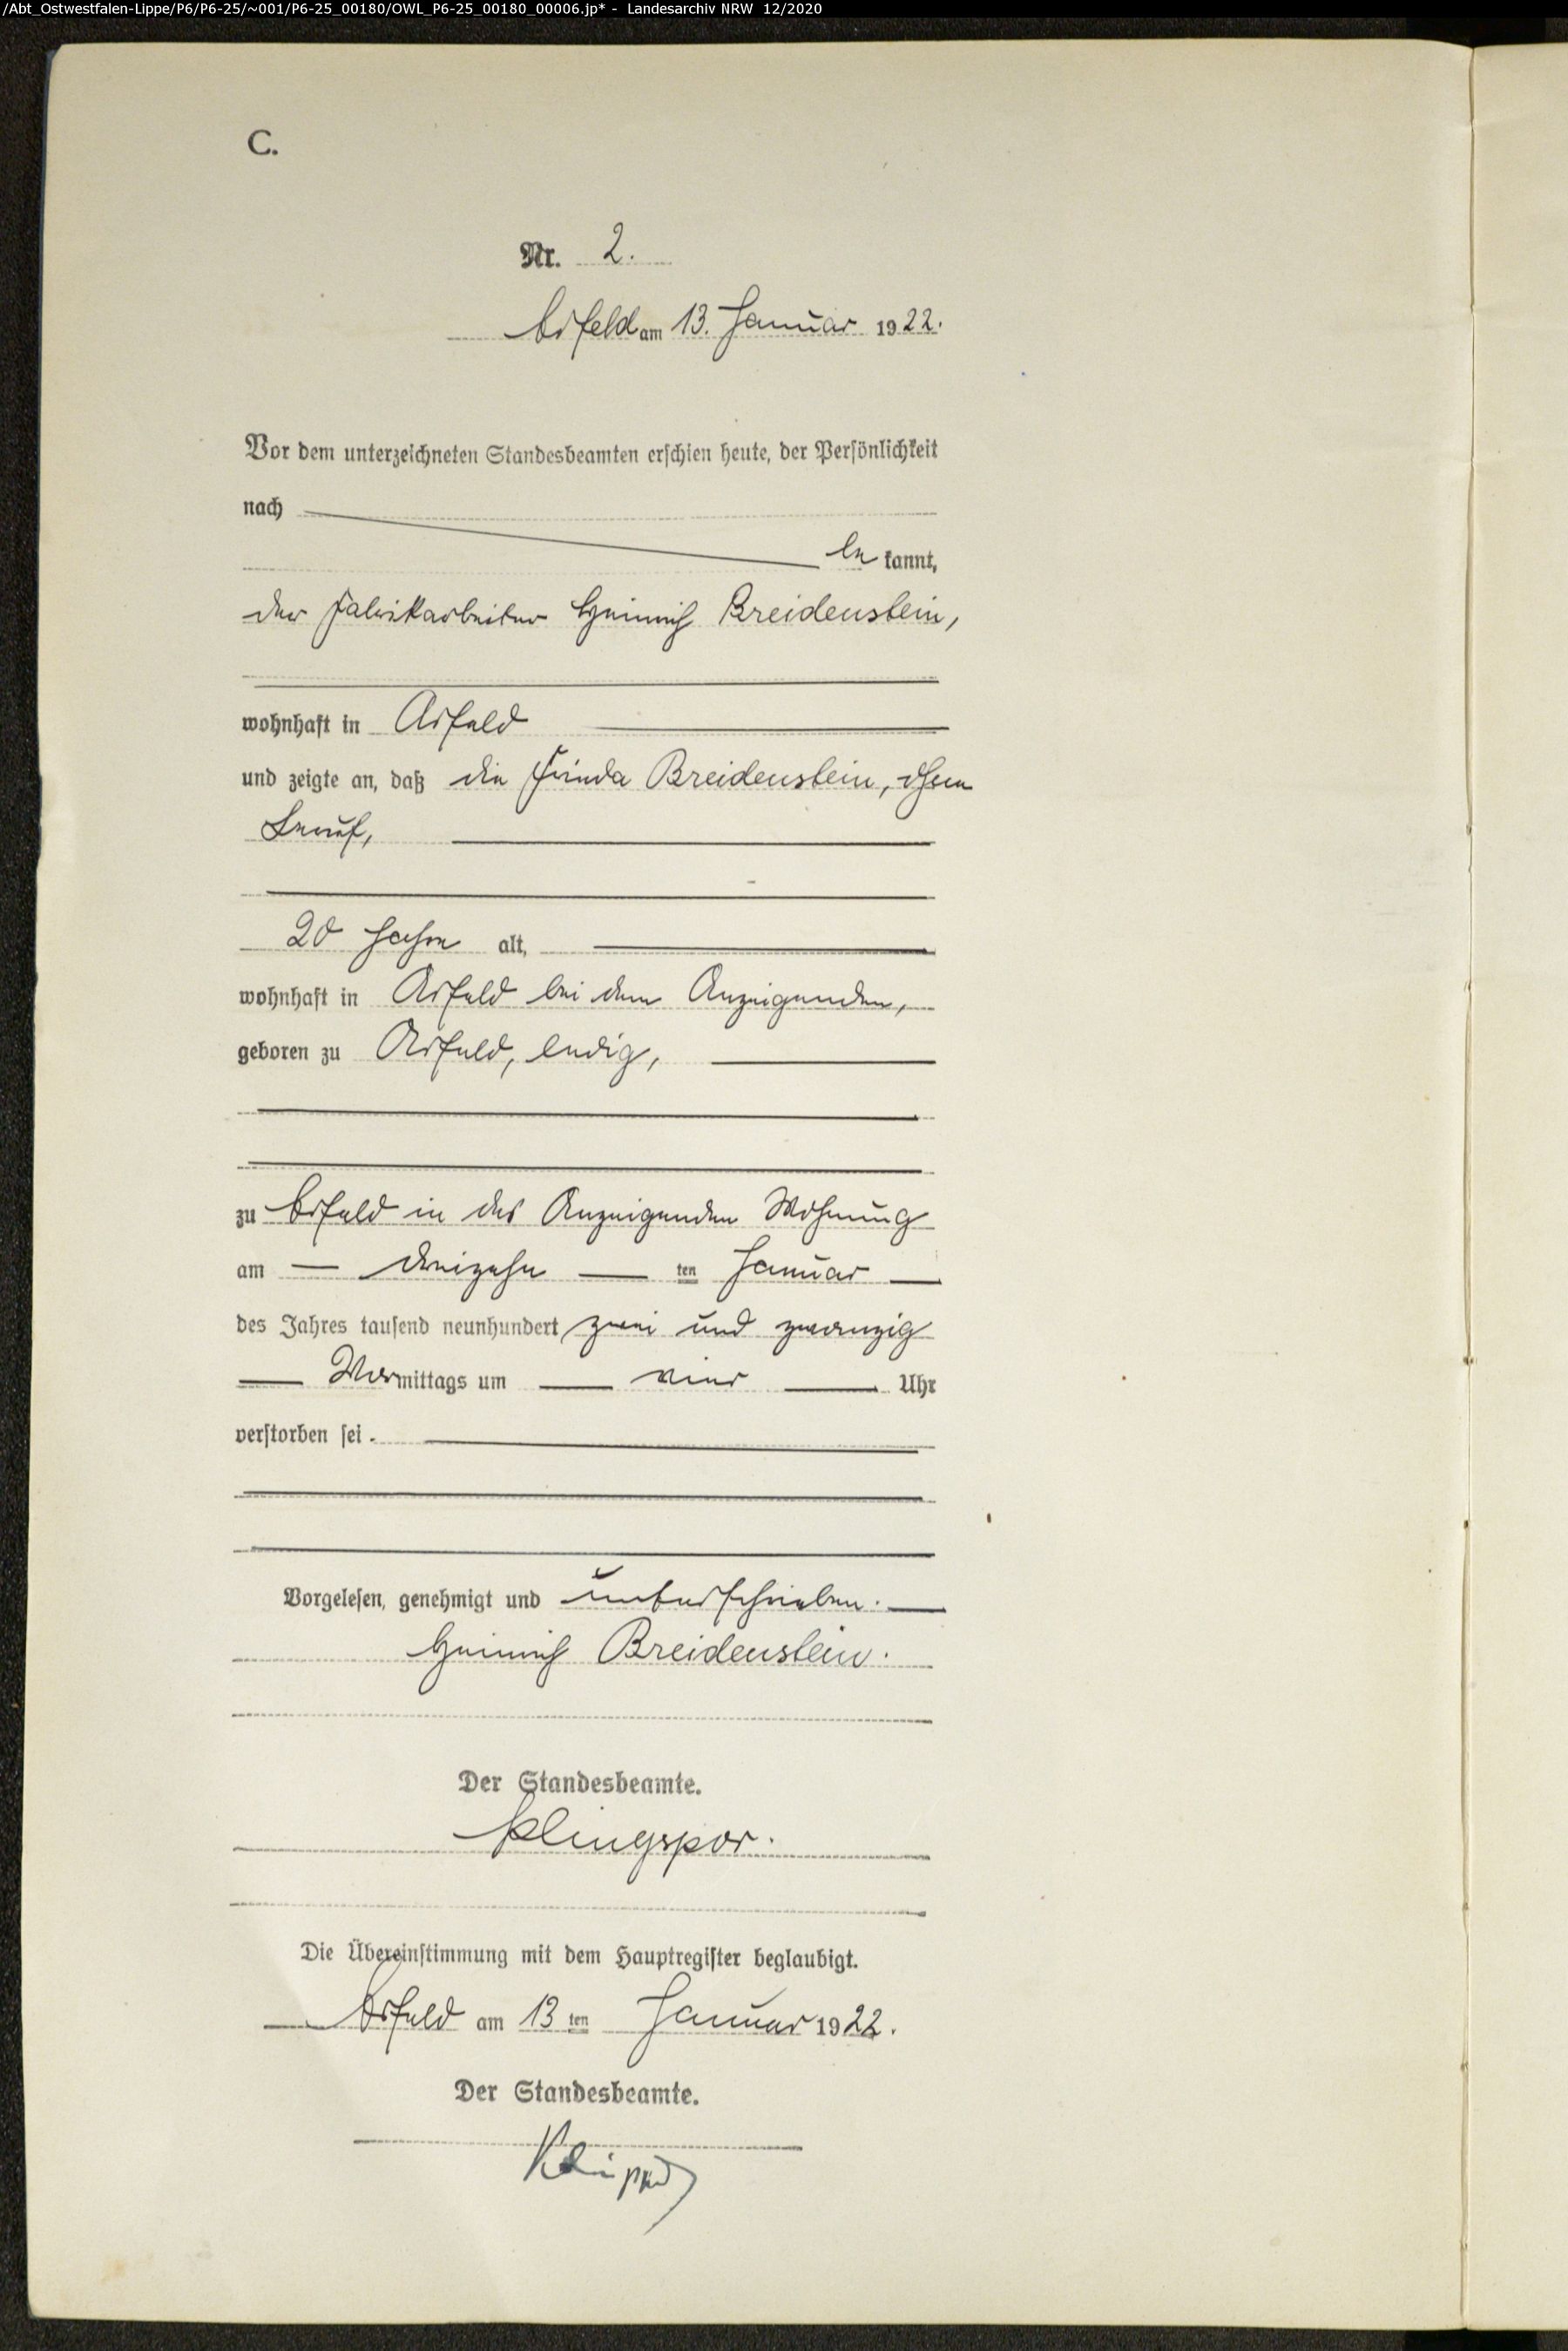 /Abt_Ostwestfalen-Lippe/P6/P6-25/~001/P6-25_00180/OWL_P6-25_00180_00006.jp* - Landesarchiv NRW 12/2020
C.
Nr. 2.
Arfeld am 13. Januar 1922.
Vor dem unterzeichneten Standesbeamten erschien heute, der Persönlichkeit
nach
bekannt,
der Fabrikarbeiter Heinrich Breidenstein,
wohnhaft in Arfeld
und zeigte an, daß die Frieda Breidenstein, ohne
Beruf,
20 Jahre alt,
wohnhaft in Arfeld bei dem Anzeigenden,
geboren zu Arfeld, ledig,
zu Arfeld in des Anzeigenden Wohnung
am — dreizehn — ten Januar —
des Jahres tausend neunhundert zwei und zwanzig
— Vormittags um — — Uhr
verstorben sei.
Vorgelesen, genehmigt und unterschrieben. —
Heinrich Breidenstein.
Der Standesbeamte.
Klingspor.
Die Übereinstimmung mit dem Hauptregister beglaubigt.
Arfeld am 13 ten Januar 1922.
Der Standesbeamte.